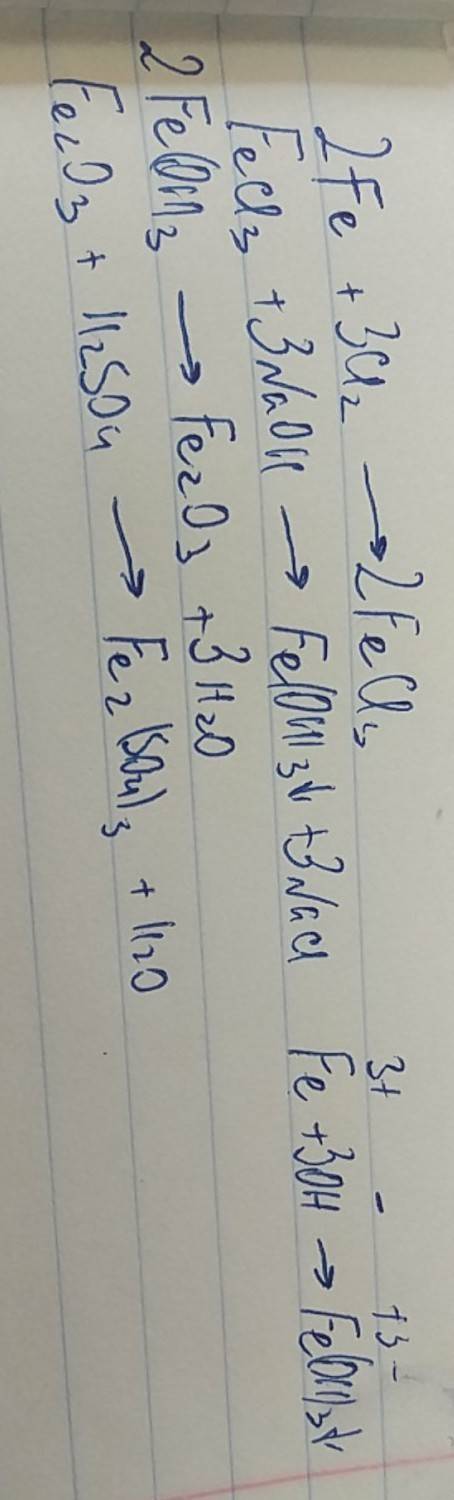 2Fe + 3Cl₂ → 2FeCl₃
3+ - +3 -
FeCl₃ + 3NaOH → Fe(OH)₃↓ + 3NaCl Fe + 3OH → Fe(OH)₃↓
2Fe(OH)₃ → Fe₂O₃ + 3H₂O
Fe₂O₃ + H₂SO₄ → Fe₂(SO₄)₃ + H₂O